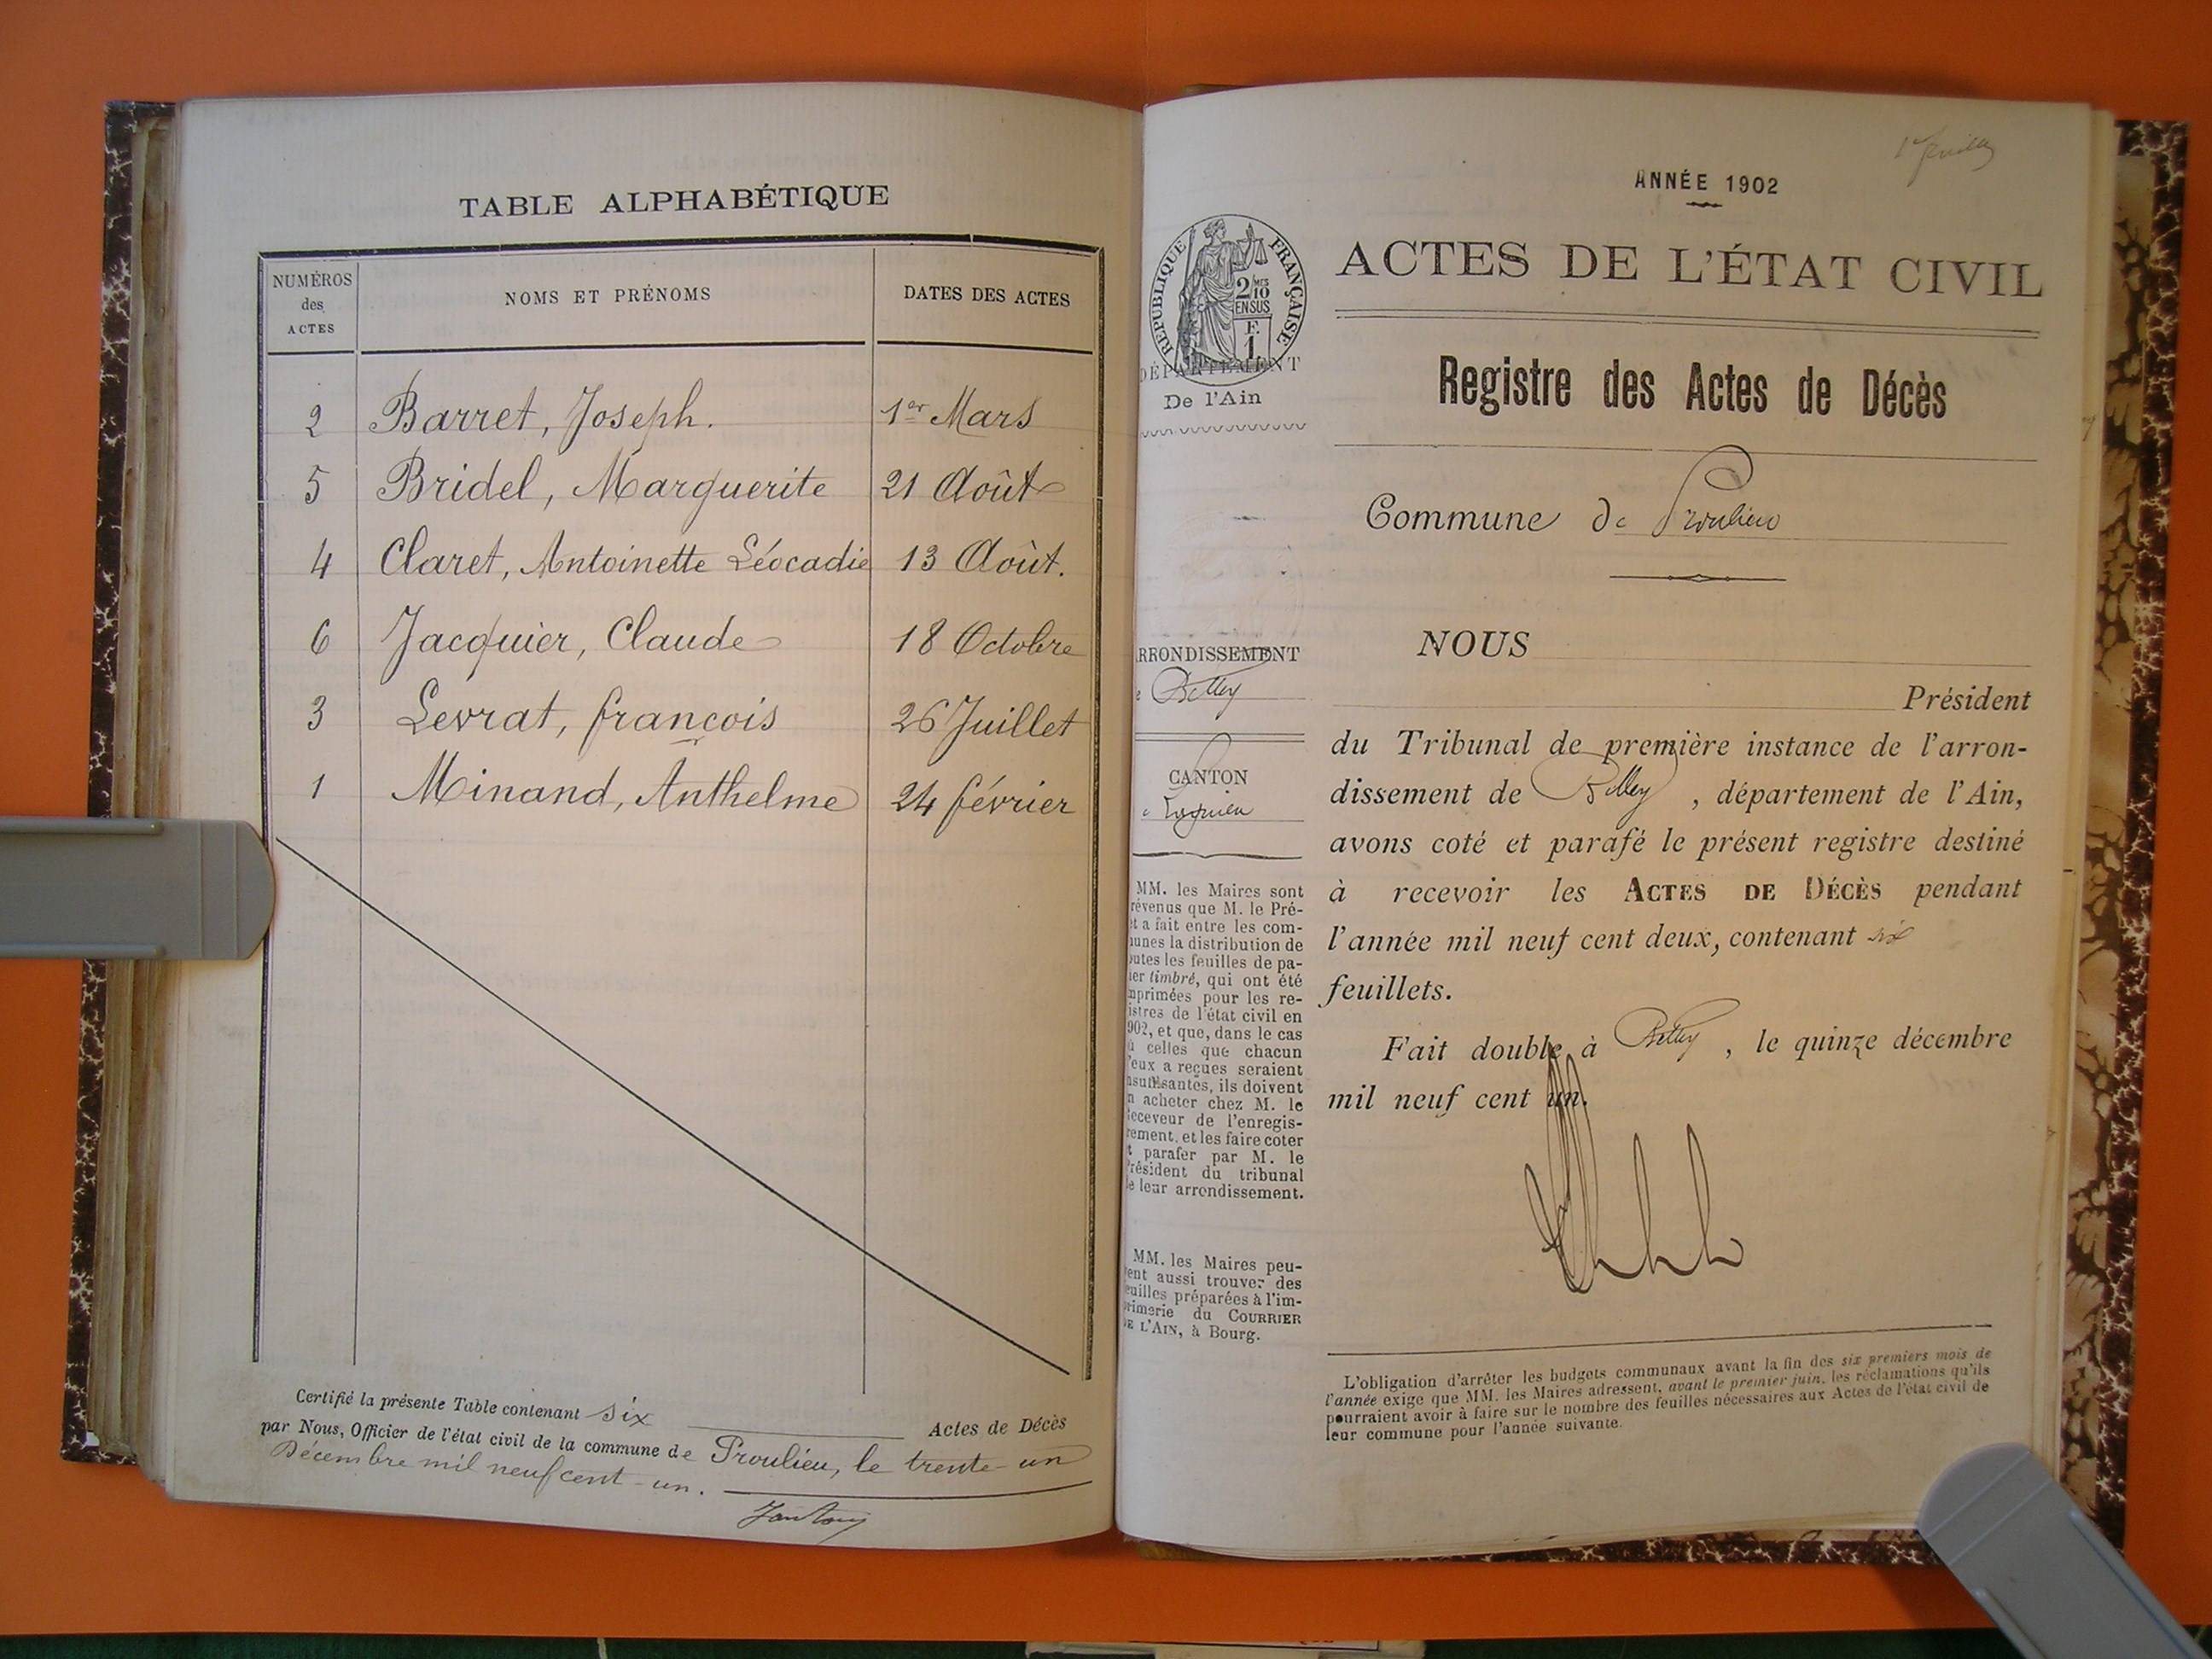 TABLE ALPHABÉTIQUE
NUMÉROS
des
ACTES
NOMS ET PRÉNOMS
DATES DES ACTES
2 Barret, Joseph. 1er Mars
5 Bridel, Marguerite 21 Août
4 Claret, Antoinette Léocadie 13 Août.
6 Jacquier, Claude 18 Octobre
3 Levrat, françois 26 Juillet
1 Minand, Anthelme 24 février
Certifié la présente Table contenant six Actes de Décès
par Nous, Officier de l'état civil de la commune de Proulieu, le trente-un
Décembre mil neuf cent-un.
ANNÉE 1902
RÉPUBLIQUE FRANÇAISE
2/10 MES
EN SUS
F.
1.
DÉPARTEMENT
De l'Ain
ARRONDISSEMENT
Belley
CANTON
Lagnieu
MM. les Maires sont
révenus que M. le Pré-
et a fait entre les com-
unes la distribution de
outes les feuilles de pa-
ier timbré, qui ont été
mprimées pour les re-
istres de l'état civil en
902, et que, dans le cas
ù celles que chacun
'eux a reçues seraient
nsuffisantes, ils doivent
n acheter chez M. le
eceveur de l'enregis-
rement, et les faire coter
t parafer par M. le
résident du tribunal
e leur arrondissement.
MM. les Maires peu-
ent aussi trouver des
euilles préparées à l'im-
rimerie du COURRIER
DE L'AIN, à Bourg.
ACTES DE L'ÉTAT CIVIL
Registre des Actes de Décès
Commune de Proulieu
NOUS
Président
du Tribunal de première instance de l'arron-
dissement de Belley, département de l'Ain,
avons coté et parafé le présent registre destiné
à recevoir les ACTES DE DÉCÈS pendant
l'année mil neuf cent deux, contenant six
feuillets.
Fait double à Belley, le quinze décembre
mil neuf cent un.
L'obligation d'arrêter les budgets communaux avant la fin des six premiers mois de
l'année exige que MM. les Maires adressent, avant le premier juin, les réclamations qu'ils
pourraient avoir à faire sur le nombre des feuilles nécessaires aux Actes de l'état civil de
leur commune pour l'année suivante.